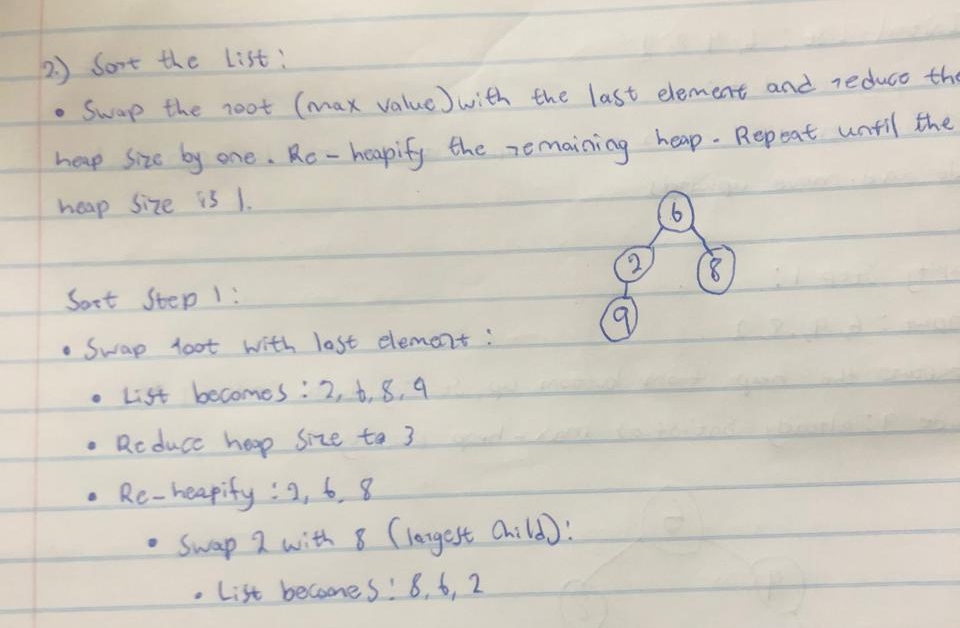 2.) Sort the List:
• Swap the root (max value) with the last element and reduce the
heap size by one. Re-heapify the remaining heap. Repeat until the
heap size is 1.
6
2 8
9
Sort Step 1:
• Swap root with last element:
• List becomes: 2, 6, 8, 9
• Reduce heap size to 3
• Re-heapify: 2, 6, 8
• Swap 2 with 8 (largest Child):
• List becomes: 8, 6, 2